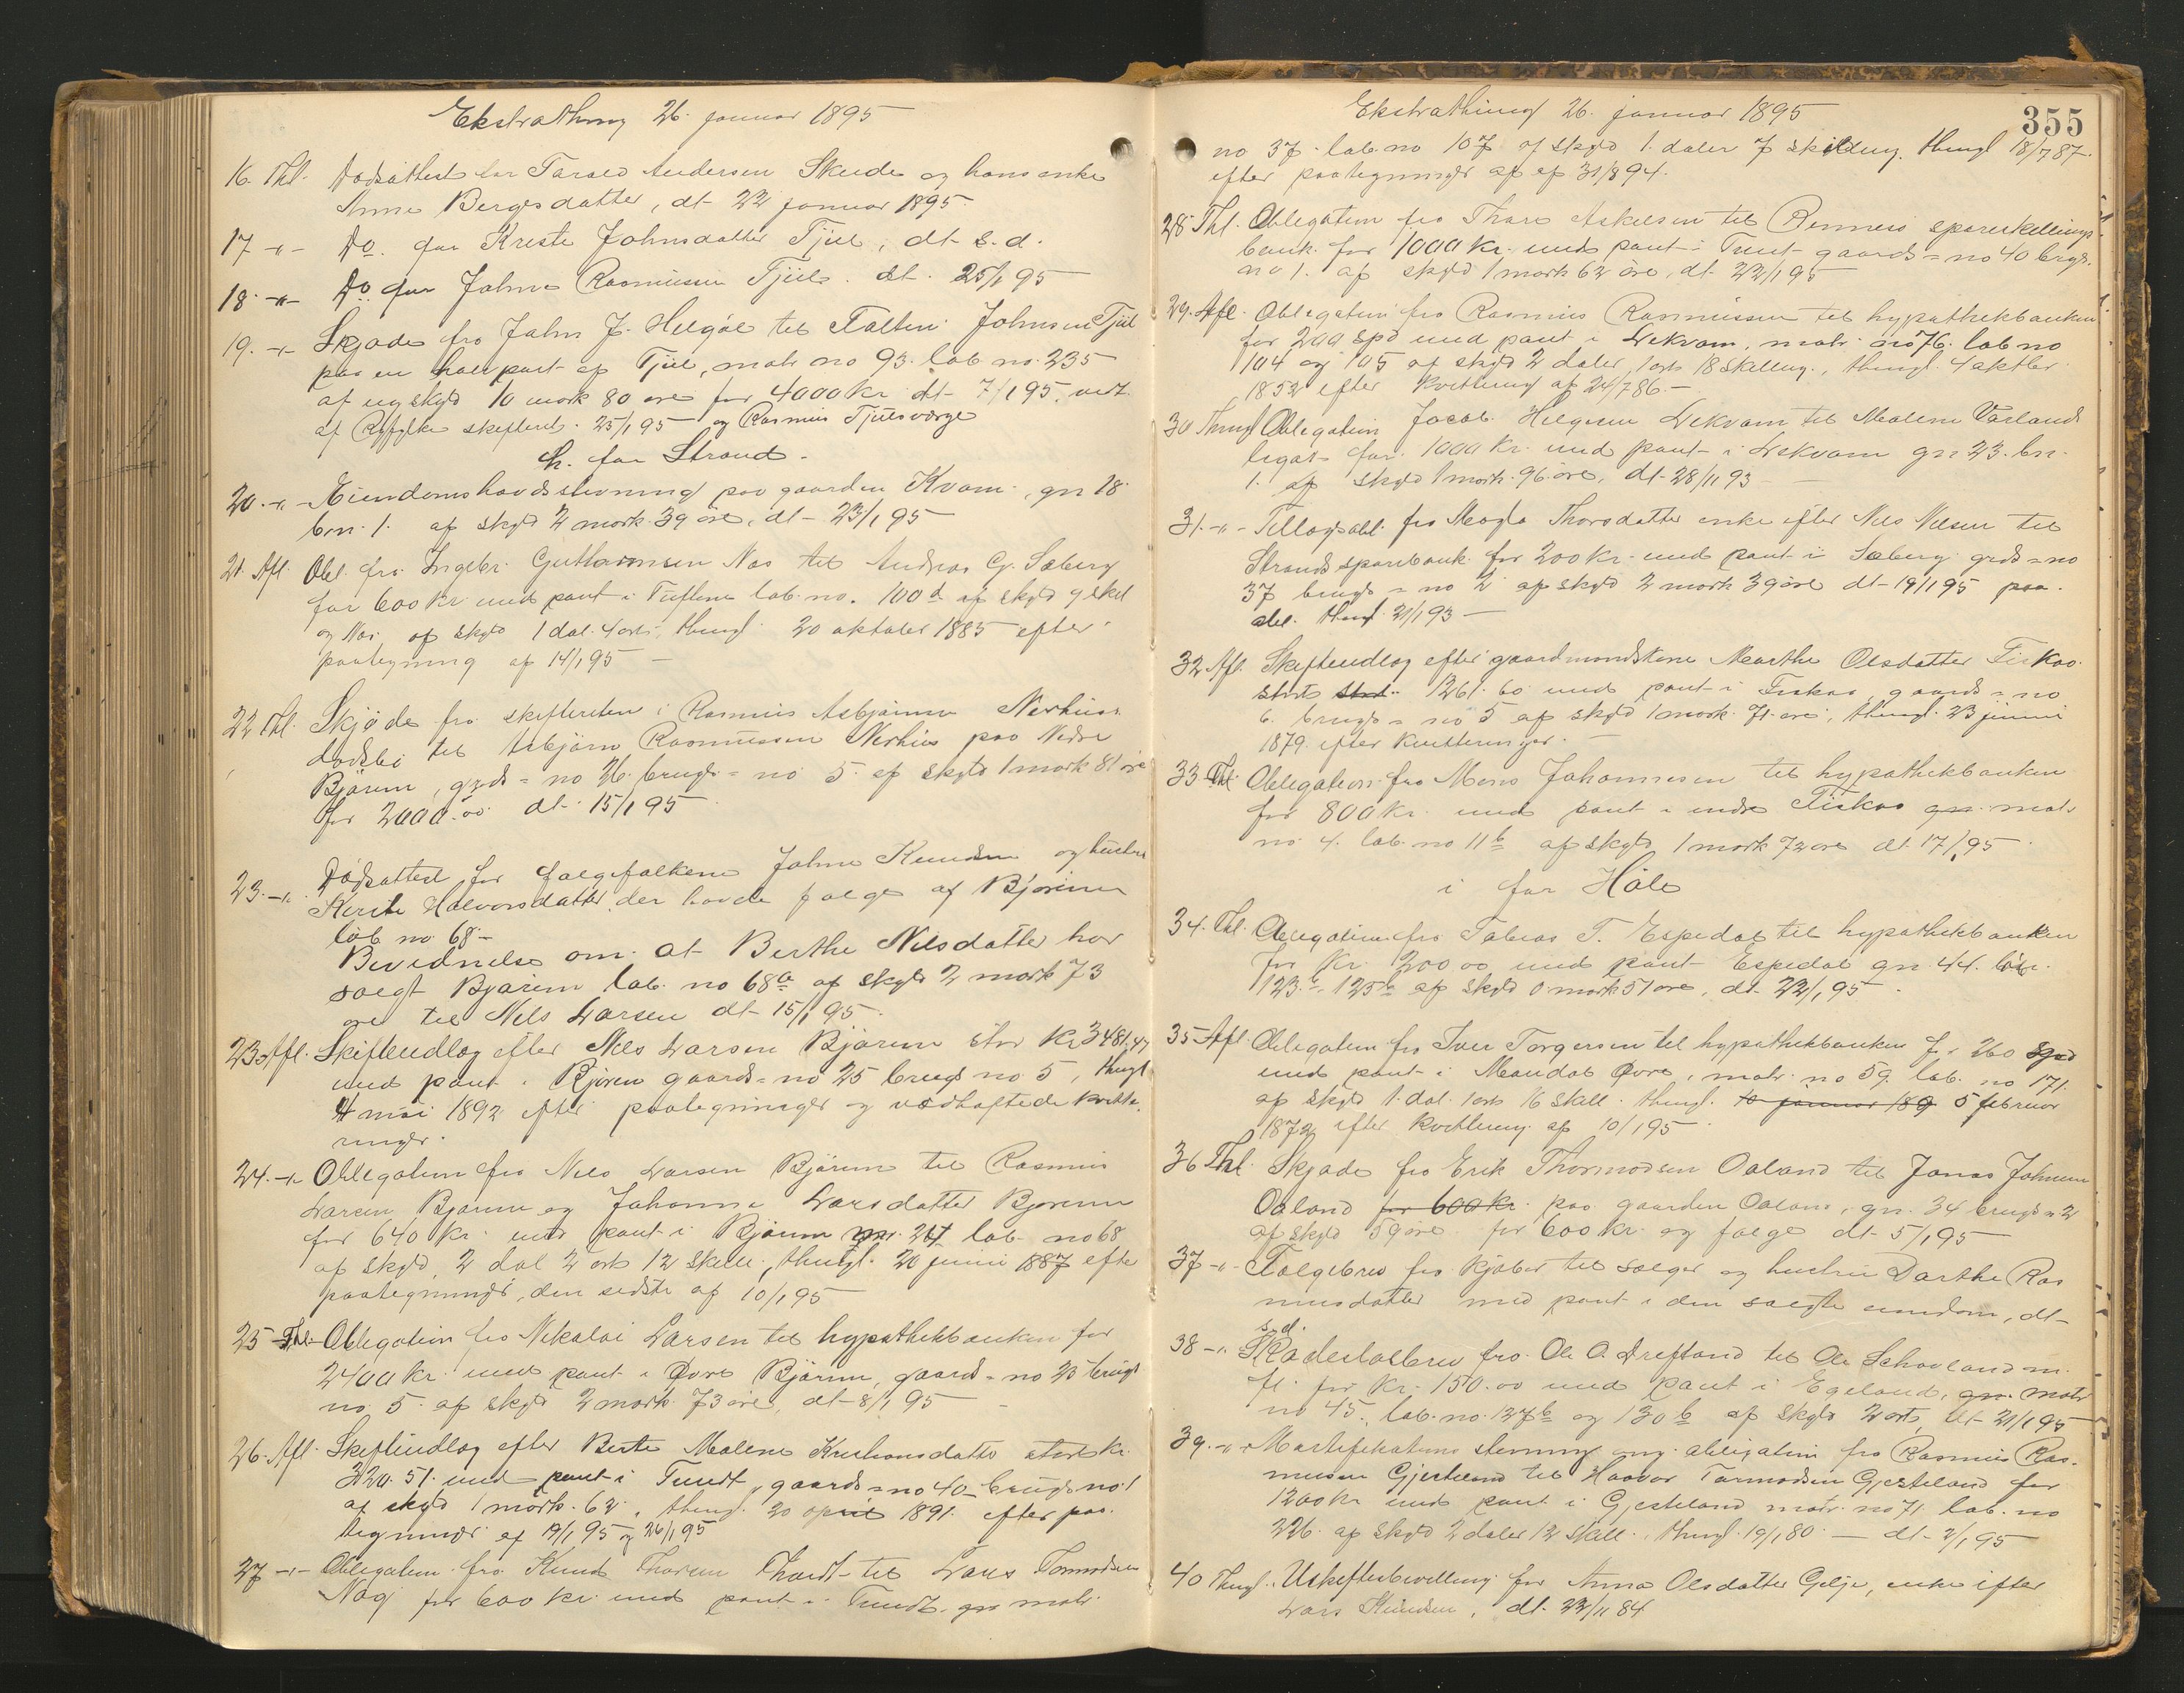 Ekstrathing 26. januar 1895
16. Thl. Dødsattest for Tarald Andersen Skeide og hans enke
Anna Bergesdatter, dt 22 januar 1895
17 -"- Do. for Kirste Johnsdatter Tjül, dt. s. d.
18. -"- Do for Johne Rasmussen Tjül. dt. 25/1 95
19. -"- Skjøde fra John J. Helgøe til Halten Johnsen Tjül
paa en halvpart af Tjül, matr no 93. løb no. 235
af ny skyld 10 mark 80 øre for 4000 Kr dt- 7/1 95. vedt.
af Ryfylke skifteret. 25/1 95 og Rasmus Tjüls værge
h. for Strand.
20. -"- Eiendomshævdsstevning paa gaarden Kvam, gn 18
brn. 1. af skyld 2 mark 39 øre, dt- 23/1 95
21. Afl. Obl. fra Ingebr. Guttormsen Nas til Andreas G. Sæberg
for 600 Kr med pant i Tuftene løb. no. 100 d af skyld 9 skil
og Nas af skyld 1 dal. 4 ort, thingl. 20 oktober 1885 efter
paategning af 14/1 95 —
22 Thl. Skjøde fra skifteretten i Rasmus Asbjørnsen Nerhus
dødsbo til Asbjørn Rasmussen Nerhus paa Nedre
Bjørem, grds = no 26. brugs = no 5. af skyld 1 mark 81 øre
for 2000.00 dt. 15/1 95
23. -"- Dødsattest for folgefolkene Johne Knudsen og hustru
Kirste Halvorsdatter, der havde folge af Bjørem
løb no 68 -
Bevidnelse om at Berthe Nilsdatter har
solgt Bjørem løb. no 68a af skyld 2 mark 73
øre til Nils Larsen dt- 15/1 95.
23 Afl. Skifteudlæg efter Nils Larsen Bjørem stor Kr 3481,47
med pant i Bjørem gaards = no 25 brugs no 5, thingl
4 mai 1892 efter paategninger og vedhæftede kvitte-
ringer.
24. -"- Obligation fra Nils Larsen Bjørem til Rasmus
Larsen Bjørem og Johanna Larsdatter Bjørem
for 640 Kr. med pant i Bjørem løb no 68
af skyld 2 dal 2 ort 12 skill., thingl. 20 juni 1887 efter
paategninger, den sidste af 10/1 95 —
25 Thl. Obligation fra Nikolai Larsen til hypothekbanken for
2400 Kr. med pant i Øvre Bjørem, gaards = no 25 brugs
no. 5. af skyld 2 mark 73 øre, dt- 8/1 95
26. Afl. Skifteudlæg efter Berte Malene Kristiansdatter stort Kr.
320. 51. med pant i Tundt, gaards = no 40 brugs no. 1
af skyld 1 mark. 62, thingl. 20 april 1891. efter paa-
tegninger af 19/1 95 og 26/1 95
27 -"- Obligation fra Knud Thoresen til Lars Tormodsen
Nag for 600 Kr. med pant i Tundt, gn matr.
Ekstrathing 26. januar 1895
355
no 37. løb no 107 af skyld 1. daler 7 skilling. thingl 18/7 87.
efter paategninger af 31/8 94.
28 Thl. Obligation fra Thore Askelsen til Rennesø spareskillings-
bank for 1000 Kr. med pant i Tunt gaards = no 40 brgs.
no 1. af skyld 1 mark 62 øre, dt- 22/1 95 —
29. Afl. Obligation fra Rasmus Rasmussen til hypothekbanken
for 200 spd med pant i Lekvam, matr. no 76. løb no
104 og 105 af skyld 2 daler, 1 ort 18 skilling, thingl. 4 oktbr.
1852 efter kvittering af 24/7 86. —
30 Thingl Obligation Jacob Helgesen Lekvam til Malene Varlands
legat for. 1000 Kr. med pant i Lekvam gn 23. bn.
1. af skyld 1 mark. 96 øre, dt- 28/11 93 —
31. -"- Tillægsobl. fra Magla Thorsdatter enke efter Nils Nilsen til
Strands sparebank for 200 Kr. med pant i Sæberg grds = no
37 brugs = no 2 af skyld 2 mark 39 øre dt- 19/1 95 paa
obl. thingl. 21/1 93 —
32 Afl. Skifteudlæg efter gaardmandskone Marthe Olsdatter Fiskaa
stort 1261. 60 med pant i Fiskaa, gaards = no
6. brugs = no 5 af skyld 1 mark. 71. øre, thingl. 23 juni
1879. efter kvitteringer. —
33 Thl. Obligation fra Mons Johannesen til hypothekbanken
for 800 Kr. med pant i indre Fiskaa gn. matr
no 4. løb. no 11 b af skyld 1 mark 72 øre dt 17/1 95
i for Høle
34. Thl. Obligation fra Tobias T. Espedal til hypothekbanken
for Kr. 200.00 med pant Espedal gn. 44. løbn.
123. b 125 b af skyld 0 mark 51 øre, dt- 22/1 95
35 Afl. Obligation fra Iver Torgersen til hypothekbanken for 260 Spd
med pant i Maudal Øvre, matr. no 59. løb. no 171.
af skyld 1. dal. 1 ort 16 skill. thingl. 10 januar 189 5 februar
1872 efter kvittering af 10/1 95 -
36 Thl. Skjøde fra Erik Thormodsen Oaland til Jonas Johnsen
Oaland for 600 Kr. paa gaarden Oaland, gn. 34 brugs n 2
af skyld 59 øre for 600 Kr. og folge dt- 5/1 95 —
37 -"- Folgebrev fra kjøber til sælger og hustru Dorthe Ras
musdatter med pant i den solgte eiendom, dt-
s. d.
38 -"- Skadesløsbrev fra Ole O. Drefland til Ole Schooland m.
fl. for Kr. 150.00 med pant i Egeland, gn. matr
no 45., løb. no. 127 b og 130 b af skyld 2 ort, dt- 21/1 95
39. -"- Mortifikations stevning ang. obligation fra Rasmus Ras-
mussen Gjesteland til Haavar Tormodsen Gjesteland for
1200 Kr. med pant i Gjesteland matr. no 71 løb. no
226. af skyld 2 daler 12 skill., thingl. 19/1 80. — dt- 2/1 95 —
40 Thingl. Uskiftesbevilling for Anna Olsdatter Gilje, enke efter
Lars Knudsen, dt. 22/11 84